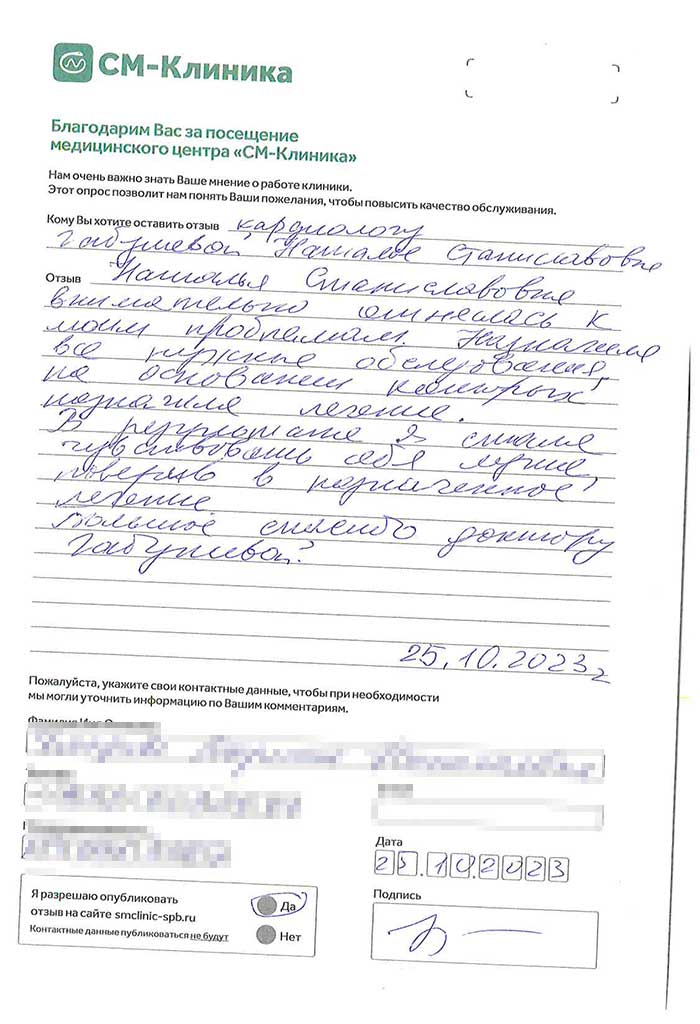 СМ-Клиника
Благодарим Вас за посещение
медицинского центра «СМ-Клиника»
Нам очень важно знать Ваше мнение о работе клиники.
Этот опрос позволит нам понять Ваши пожелания, чтобы повысить качество обслуживания.
Кому Вы хотите оставить отзыв кардиологу
Габушевой Наталье Станиславовне
Отзыв Наталья Станиславовна
внимательно отнеслась к
моим проблемам. Назначила
все нужные обследования,
на основании которых
назначила лечение.
В результате я стала
чувствовать себя лучше,
поверив в назначенное
лечение
Большое спасибо доктору
Габушевой!
25.10.2023г
Пожалуйста, укажите свои контактные данные, чтобы при необходимости
мы могли уточнить информацию по Вашим комментариям.
Дата
25.10.2023
Я разрешаю опубликовать
отзыв на сайте smclinic-spb.ru
Контактные данные публиковаться не будут
Да
Нет
Подпись